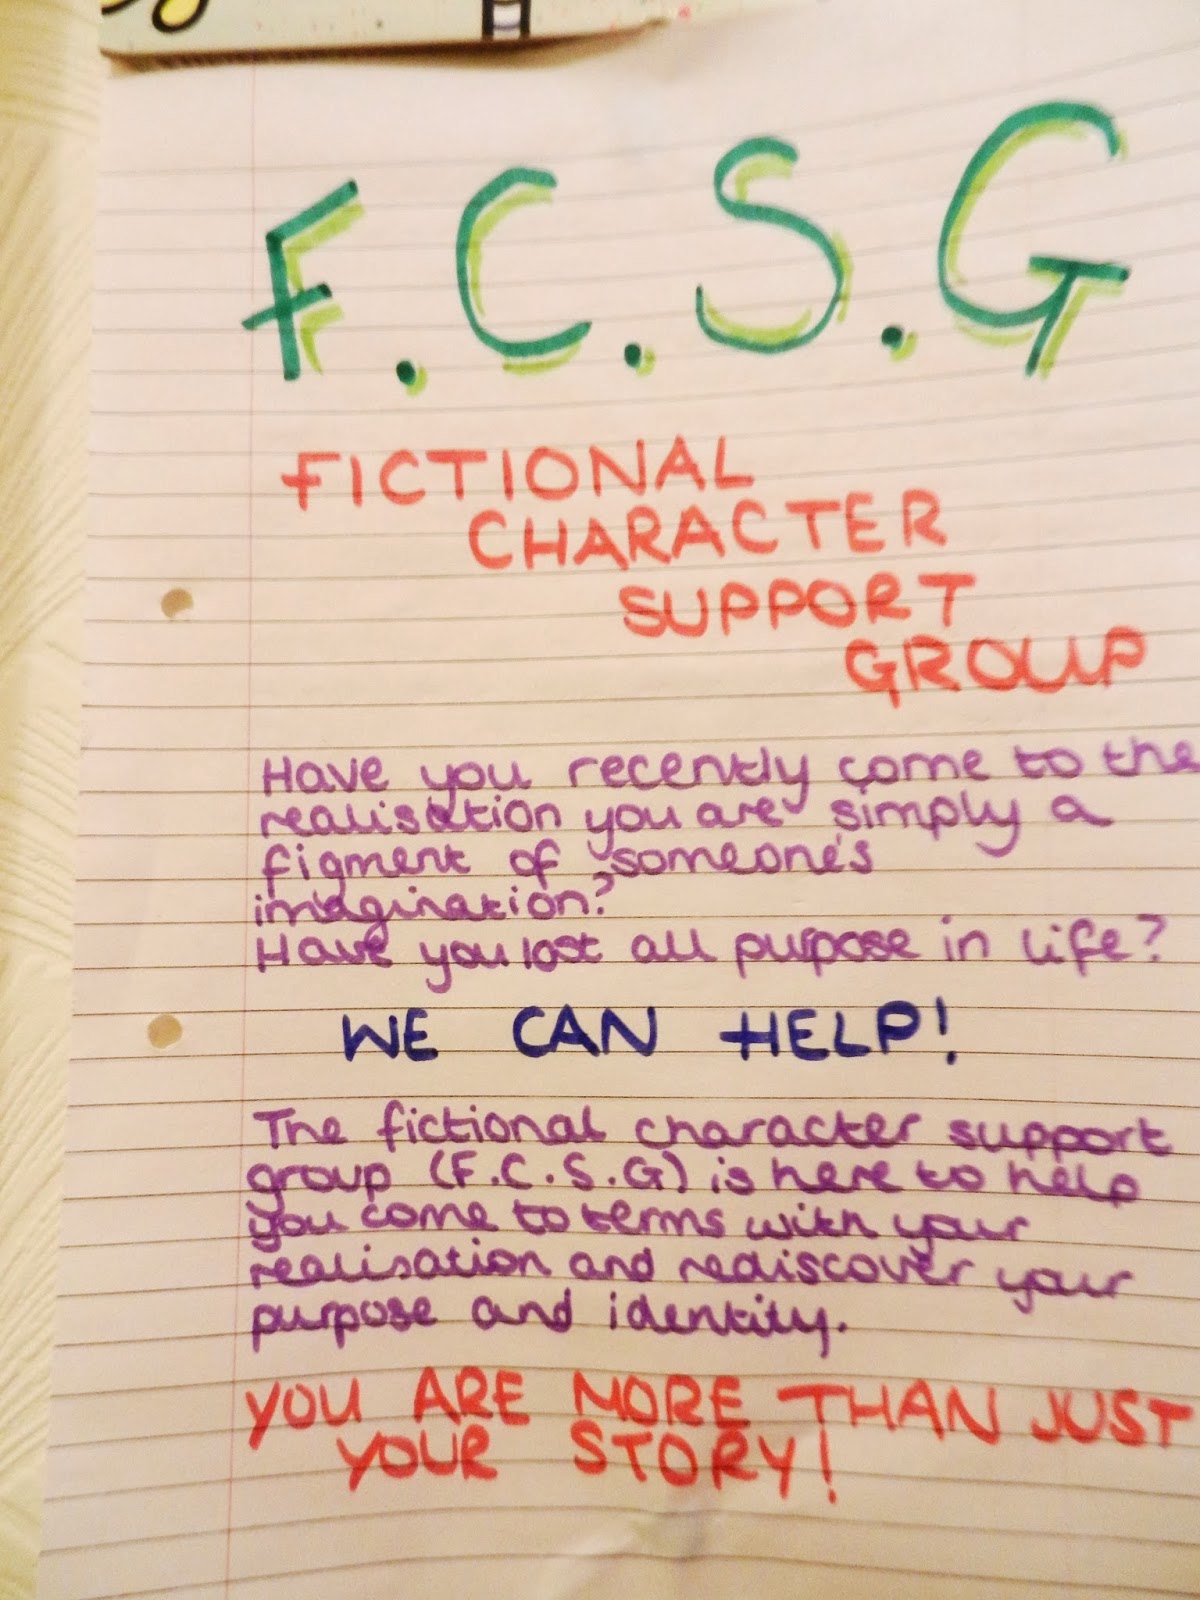 F.C.S.G
FICTIONAL
CHARACTER
SUPPORT
GROUP
Have you recently come to the
realisation you are simply a
figment of someone's
imagination?
Have you lost all purpose in life?
WE CAN HELP!
The fictional character support
group (F.C.S.G) is here to help
you come to terms with your
realisation and rediscover your
purpose and identity.
YOU ARE MORE THAN JUST
YOUR STORY!